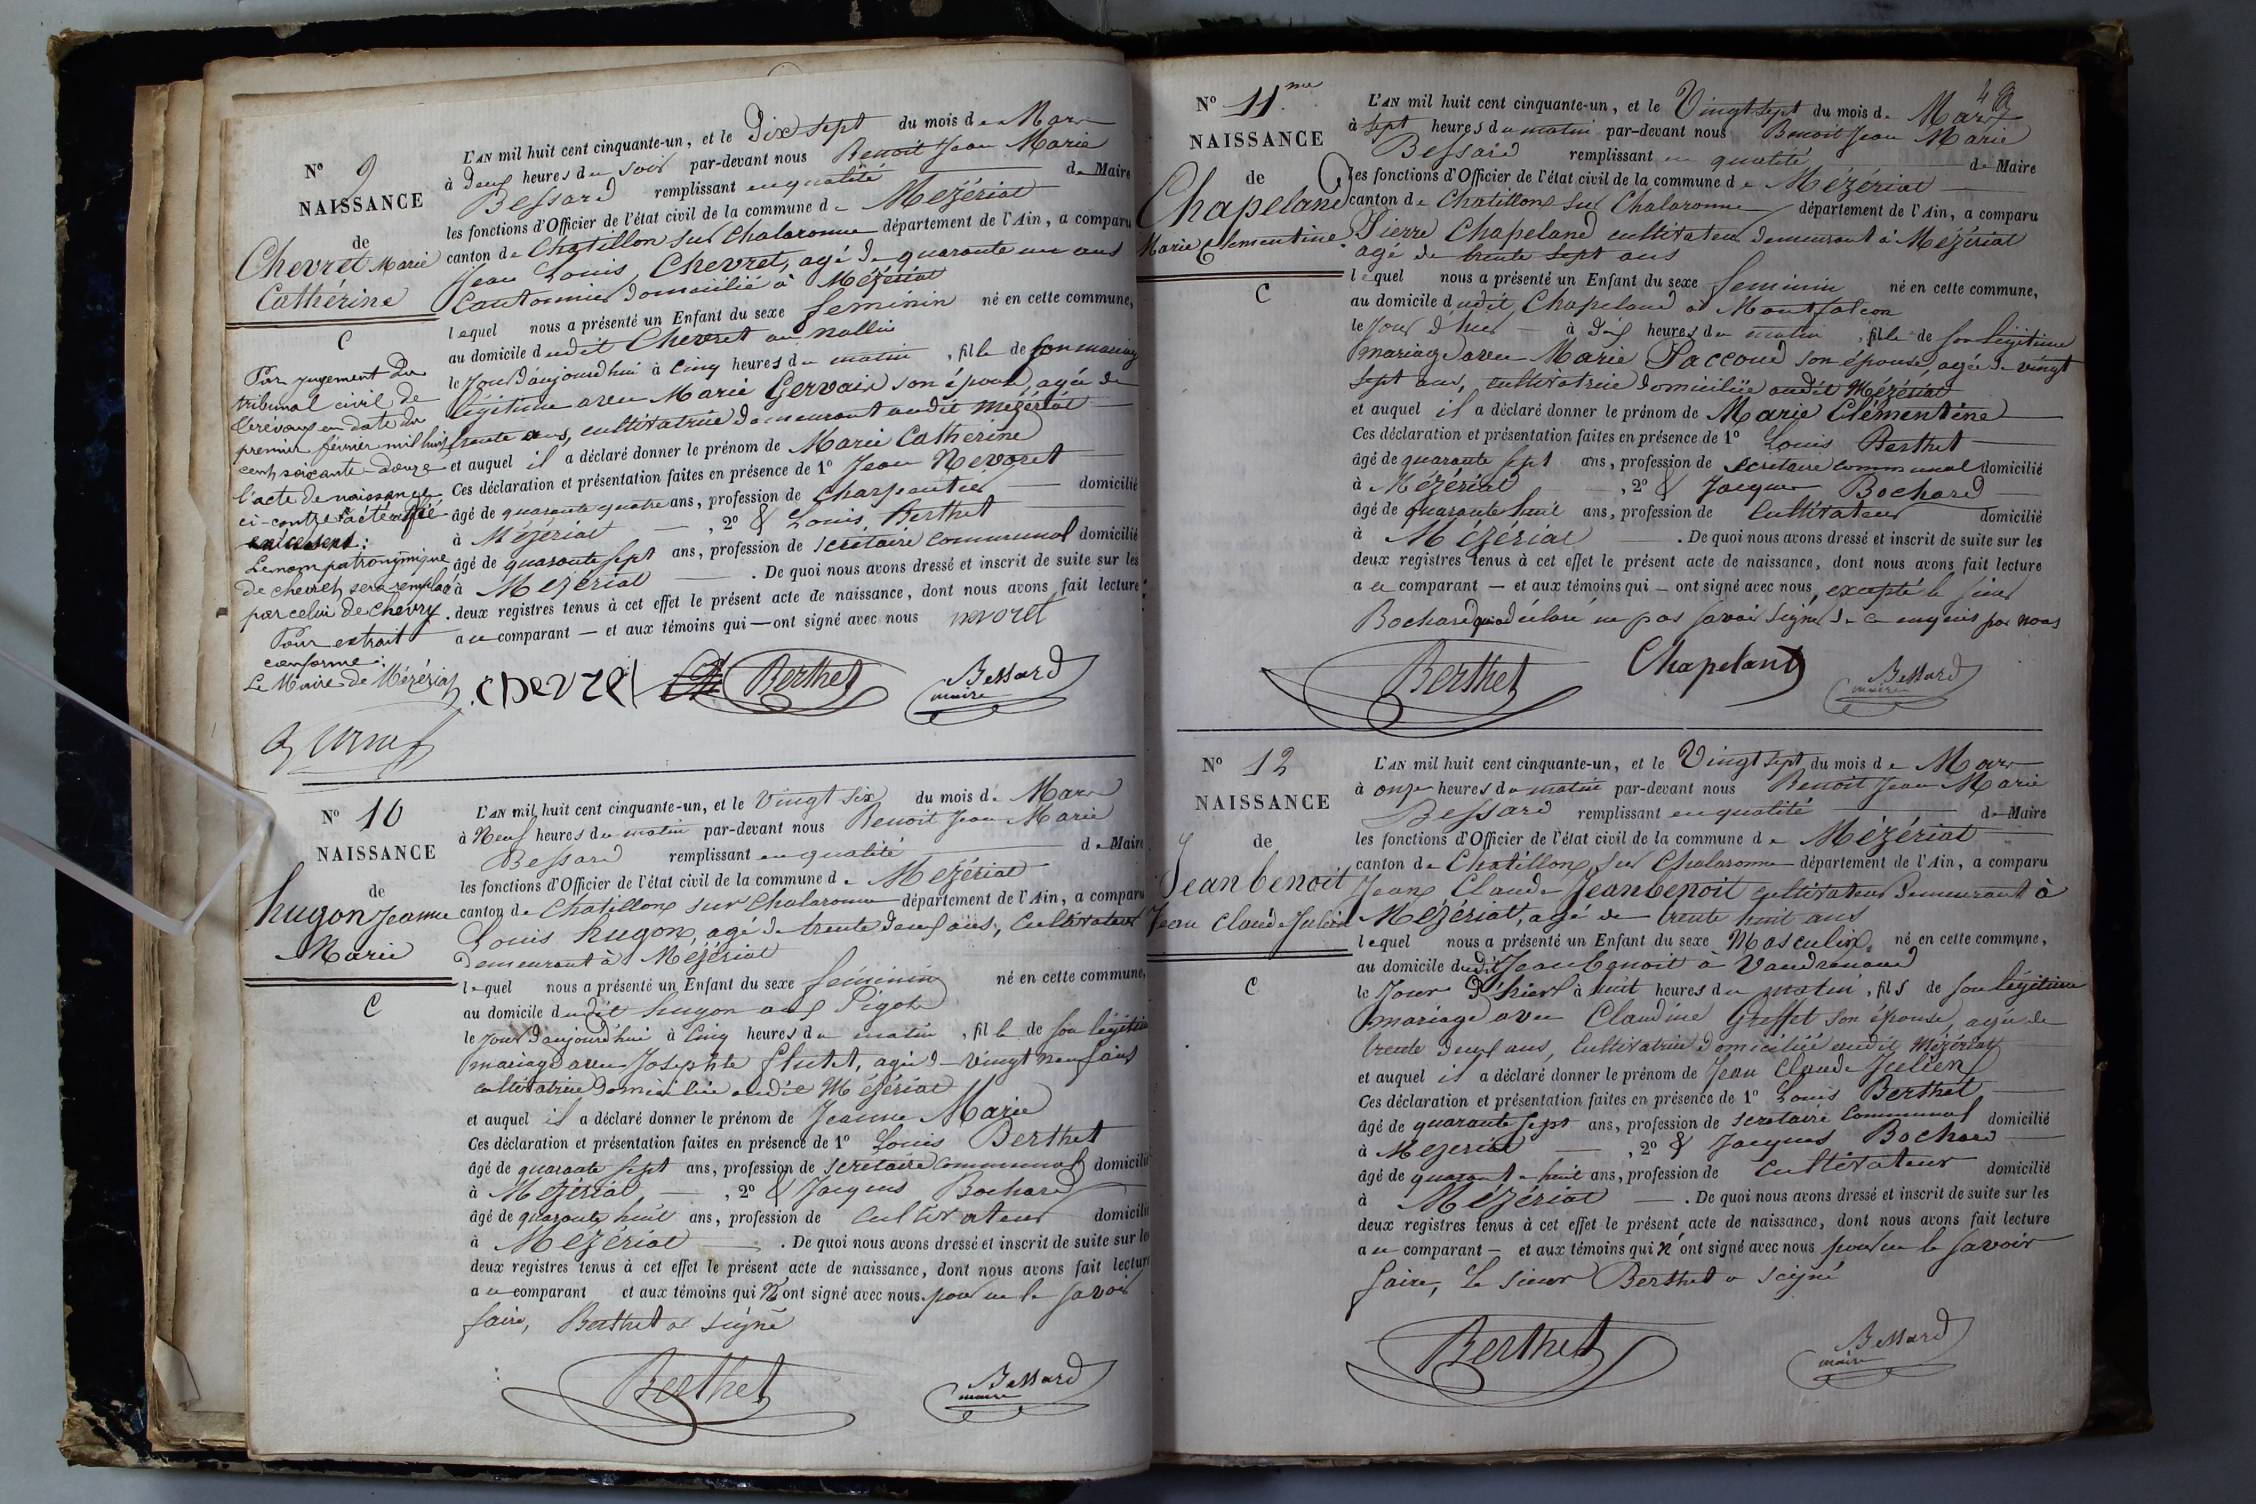 N° 9
NAISSANCE
de
Chevret Marie
Cathérine
C
Par jugement du
tribunal civil de
Trévoux en date du
premier février mil huit
cent soixante-douze
l'acte de naissance
ci-contre a été rectifié
Le nom patronymique
de chevret sera remplacé
par celui de Chevry.
Pour extrait
conforme:
Le Maire de Mézériat
L'AN mil huit cent cinquante-un, et le Dix sept du mois de Mars
à Deux heures du soir par-devant nous Benoit Jean Marie
Bessard remplissant en qualité de Maire
les fonctions d'Officier de l'état civil de la commune de Mézériat
canton de Chatillon sur Chalaronne département de l'Ain, a comparu
Jean Louis Chevret, agé de quarante un ans
Cantonnier domicilié à Mézériat
lequel nous a présenté un Enfant du sexe feminin né en cette commune,
au domicile dudit Chevret au Mollin
le Jour d'aujourd'hui à Cinq heures du matin, fille de son mariage
légitime avec Marie Gervais son épouse, agée de
trente ans, cultivatrice demeurant audit Mézériat
et auquel il a déclaré donner le prénom de Marie Catherine
Ces déclaration et présentation faites en présence de 1° Jean Nevoret
âgé de quarante quatre ans, profession de Charpentier domicilié
à Mézériat, 2° & Louis Berthet
âgé de quarante sept ans, profession de secrétaire communal domicilié
à Mézériat. De quoi nous avons dressé et inscrit de suite sur les
deux registres tenus à cet effet le présent acte de naissance, dont nous avons fait lecture
au comparant — et aux témoins qui — ont signé avec nous nevoret
chevret Berthet Bessard
maire
N° 10
NAISSANCE
de
hugon Jeanne
Marie
C
L'AN mil huit cent cinquante-un, et le vingt six du mois de Mars
à Neuf heures du matin par-devant nous Benoit Jean Marie
Bessard remplissant en qualité de Maire
les fonctions d'Officier de l'état civil de la commune de Mézériat
canton de Chatillon sur Chalaronne département de l'Ain, a comparu
Louis hugon, agé de trente deux ans, Cultivateur
demeurant à Mézériat
lequel nous a présenté un Enfant du sexe féminin né en cette commune,
au domicile dudit hugon aux Pigots
le jour d'aujourd'hui à Cinq heures du matin, fille de son légitime
mariage avec Josephte flutet, agée de vingt neuf ans
cultivatrice domiciliée audit Mézériat
et auquel il a déclaré donner le prénom de Jeanne Marie
Ces déclaration et présentation faites en présence de 1° Louis Berthet
âgé de quarante sept ans, profession de secrétaire communal domicilié
à Mézériat, 2° & Jacques Bochard
âgé de quarante huit ans, profession de Cultivateur domicilié
à Mézériat. De quoi nous avons dressé et inscrit de suite sur les
deux registres tenus à cet effet le présent acte de naissance, dont nous avons fait lecture
au comparant et aux témoins qui N'ont signé avec nous pour ne le savoir
faire, Berthet a signé
Berthet Bessard
maire
N° 11me
NAISSANCE
de
Chapeland
Marie Clementine
C
L'AN mil huit cent cinquante-un, et le Vingt sept du mois de Mars
à sept heures du matin par-devant nous Benoit Jean Marie
Bessard remplissant en qualité de Maire
les fonctions d'Officier de l'état civil de la commune de Mézériat
canton de Chatillon sur Chalaronne département de l'Ain, a comparu
Pierre Chapeland cultivateur demeurant à Mézériat
agé de trente sept ans
lequel nous a présenté un Enfant du sexe feminin né en cette commune,
au domicile dudit Chapeland à Montfalcon
le Jour d'hier à dix heures du matin, fille de son légitime
mariage avec Marie Paccoud son épouse, agée de vingt
sept ans, cultivatrice domiciliée audit Mézériat
et auquel il a déclaré donner le prénom de Marie Clémentine
Ces déclaration et présentation faites en présence de 1° Louis Berthet
âgé de quarante sept ans, profession de secretaire communal domicilié
à Mézériat, 2° & Jacques Bochard
âgé de quarante huit ans, profession de Cultivateur domicilié
à Mézériat. De quoi nous avons dressé et inscrit de suite sur les
deux registres tenus à cet effet le présent acte de naissance, dont nous avons fait lecture
au comparant — et aux témoins qui — ont signé avec nous, excepté le sieur
Bochard qui a déclaré ne pas savoir signer de ce enquis par nous
Berthet Chapeland Bessard
maire
N° 12
NAISSANCE
de
Jeanbenoit
Jean Claude Julien
C
L'AN mil huit cent cinquante-un, et le Vingt sept du mois de Mars
à onze heures du matin par-devant nous Benoit Jean Marie
Bessard remplissant en qualité de Maire
les fonctions d'Officier de l'état civil de la commune de Mézériat
canton de Chatillon sur Chalaronne département de l'Ain, a comparu
Jean Claude Jeanbenoit cultivateur demeurant à
Mézériat, agé de trente huit ans
lequel nous a présenté un Enfant du sexe Masculin né en cette commune,
au domicile dudit Jeanbenoit à Vaudrenand
le Jour d'hier à huit heures du matin, fils de son légitime
mariage avec Claudine Greffet son épouse, agée de
trente deux ans, Cultivatrice domiciliée audit Mézériat
et auquel il a déclaré donner le prénom de Jean Claude Julien
Ces déclaration et présentation faites en présence de 1° Louis Berthet
âgé de quarante sept ans, profession de secrétaire Communal domicilié
à Mézériat, 2° & Jacques Bochard
âgé de quarante huit ans, profession de Cultivateur domicilié
à Mézériat. De quoi nous avons dressé et inscrit de suite sur les
deux registres tenus à cet effet le présent acte de naissance, dont nous avons fait lecture
au comparant — et aux témoins qui n'ont signé avec nous pour ne le savoir
faire, le sieur Berthet a signé
Berthet Bessard
maire